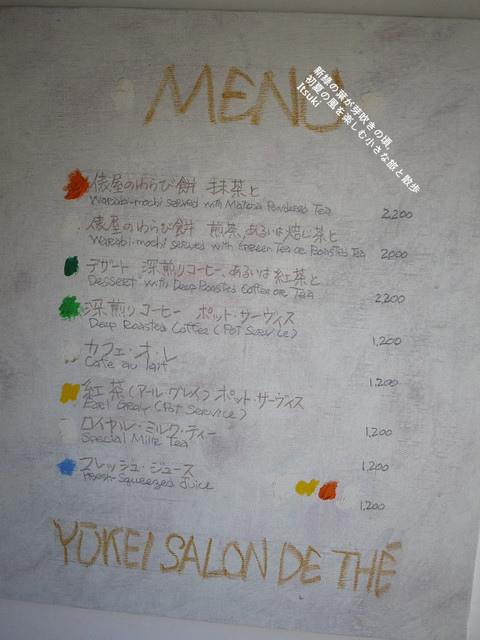 MENU
新緑の葉が芽吹きの頃。
初夏の風を楽しむ小さな旅と散歩
Itsuki
俵屋のわらび餅 抹茶と
Warabi-mochi served with Matcha Powdered Tea 2,200
俵屋のわらび餅 煎茶、あるいは焙じ茶と
Warabi-mochi served with Green Tea or Roasted Tea 2000
デザート 深煎りコーヒー、あるいは紅茶と
Dessert with Deep Roasted Coffee or Tea 2,200
深煎りコーヒー ポット・サーヴィス
Deep Roasted Coffee (Pot Service) 1,200
カフェ・オ・レ
Cafe au lait 1,200
紅茶(アール・グレイ) ポット・サーヴィス
Earl Gray (Pot Service) 1,200
ロイヤル・ミルク・ティー
Special Milk Tea 1,200
フレッシュ・ジュース
Fresh-Squeezed Juice 1,200
YŪKEI SALON DE THÉ